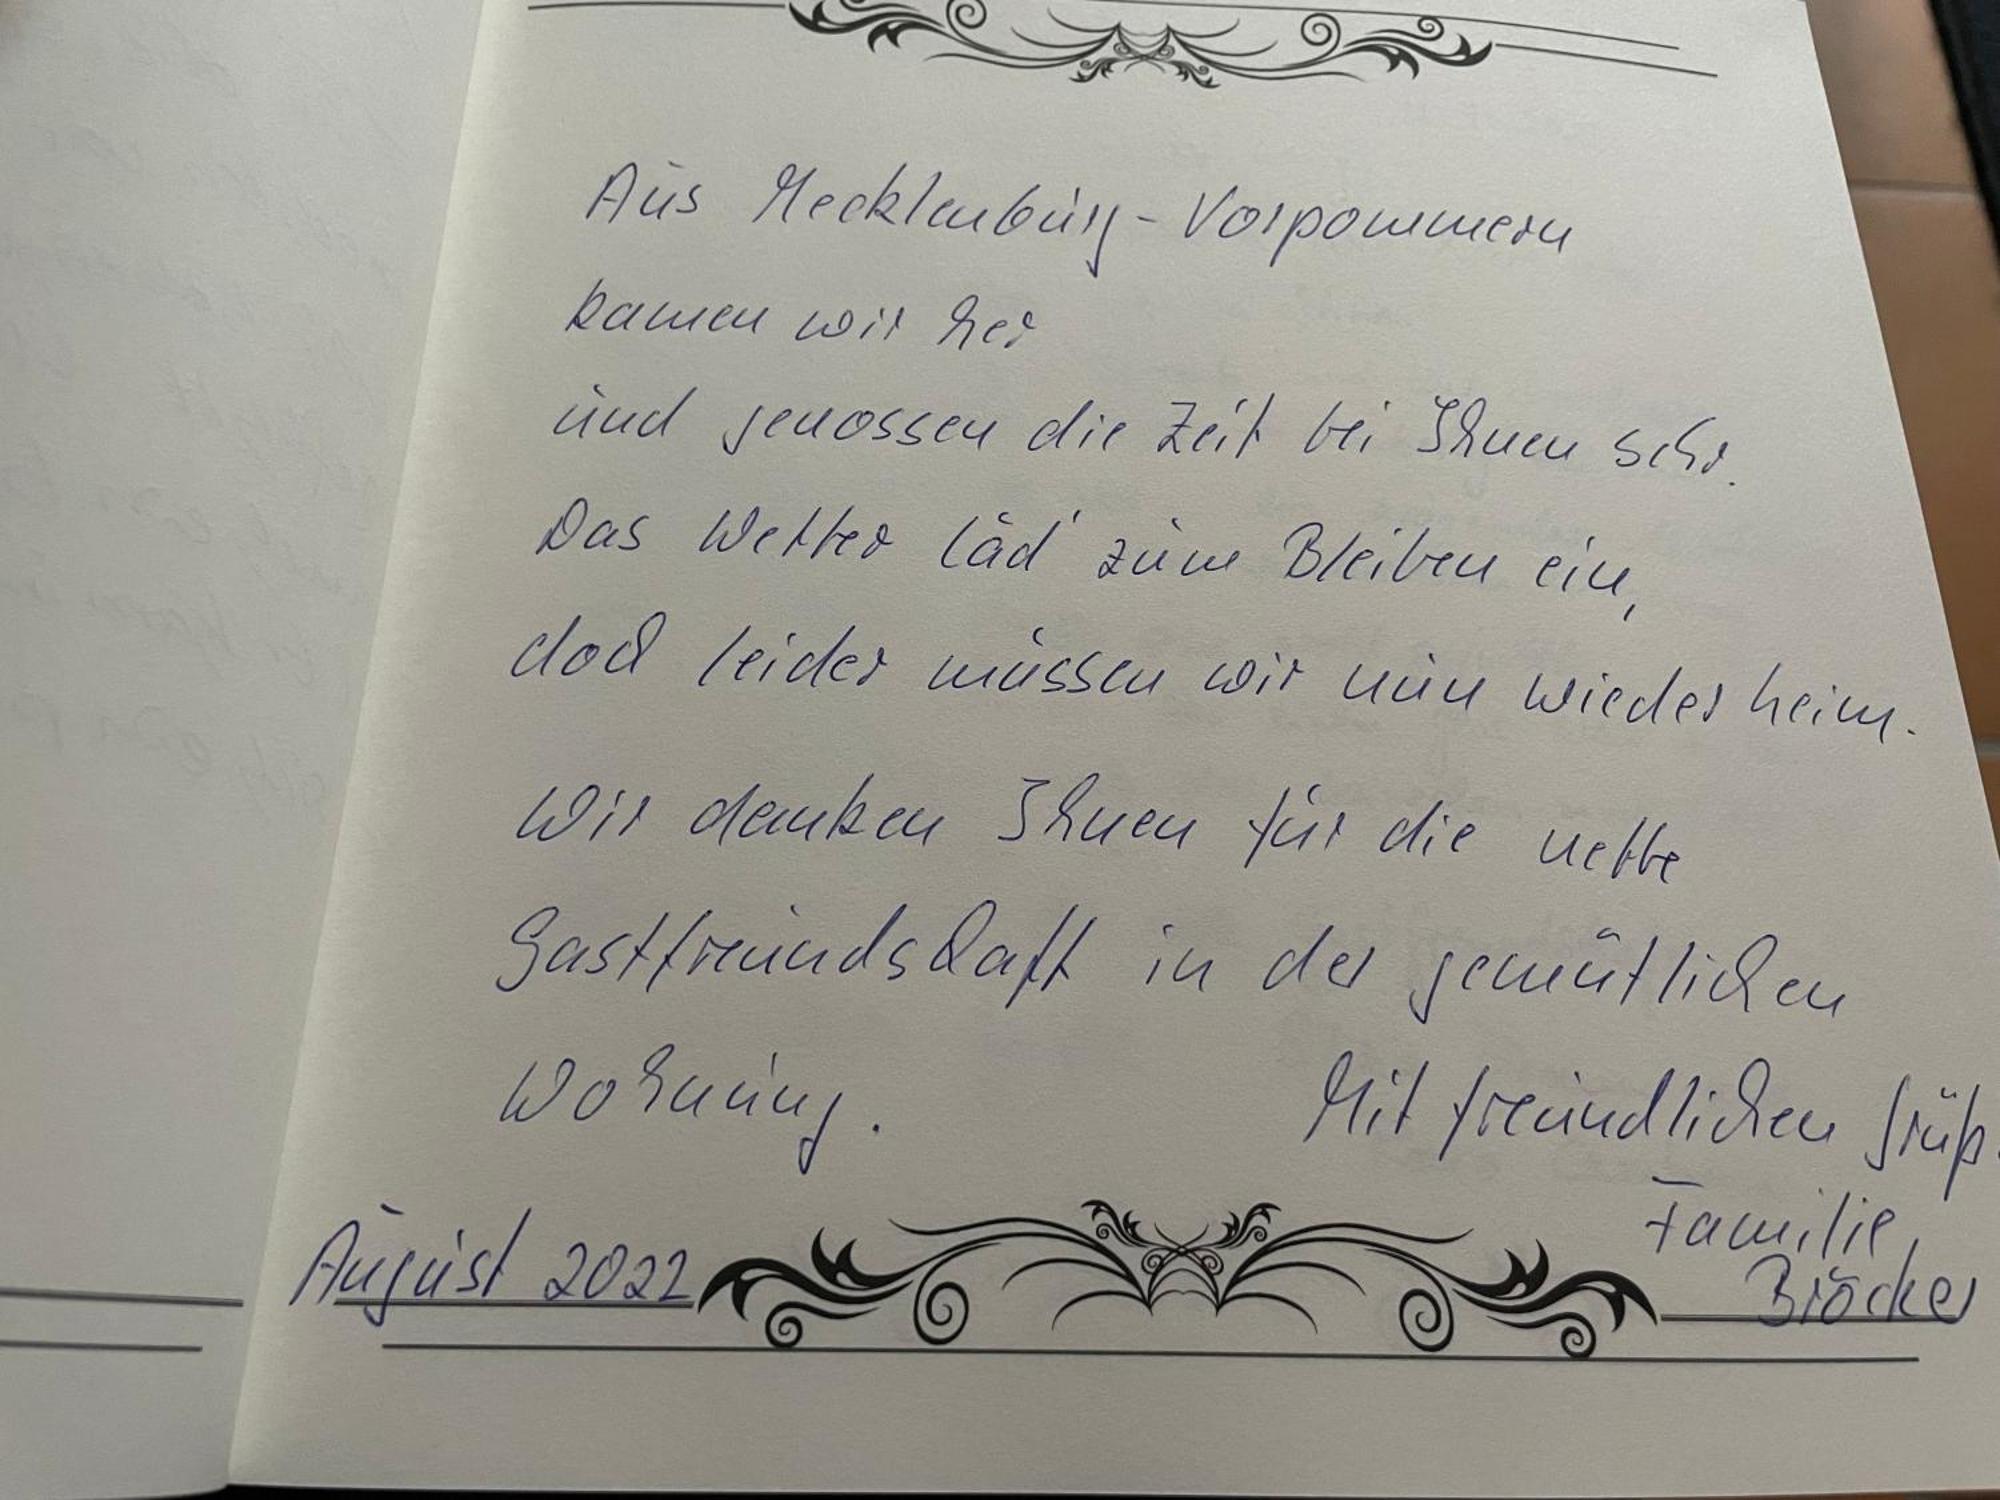 Aus Mecklenburg-Vorpommern
kamen wir her
und genossen die Zeit bei Ihnen sehr.
Das Wetter läd' zum Bleiben ein,
doch leider müssen wir nun wieder heim.
Wir danken Ihnen für die nette
Gastfreundschaft in der gemütlichen
Wohnung. Mit freundlichen Grüß.
Familie
August 2022 Bröcker